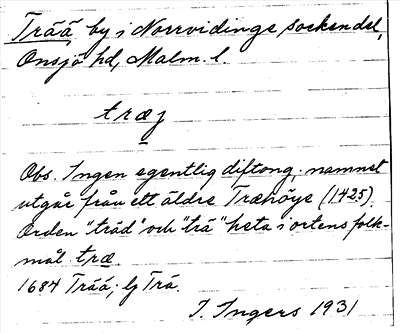 Trää, by i Norrvidinge sockendel,
Onsjö hd, Malm. l.
træj
Obs. Ingen egentlig diftong; namnet
utgår från ett äldre Træhöye (1425).
Orden "träd" och "trä" heta i ortens folk-
mål træ.
1684 Trää; lj Trä.
I. Ingers 1931